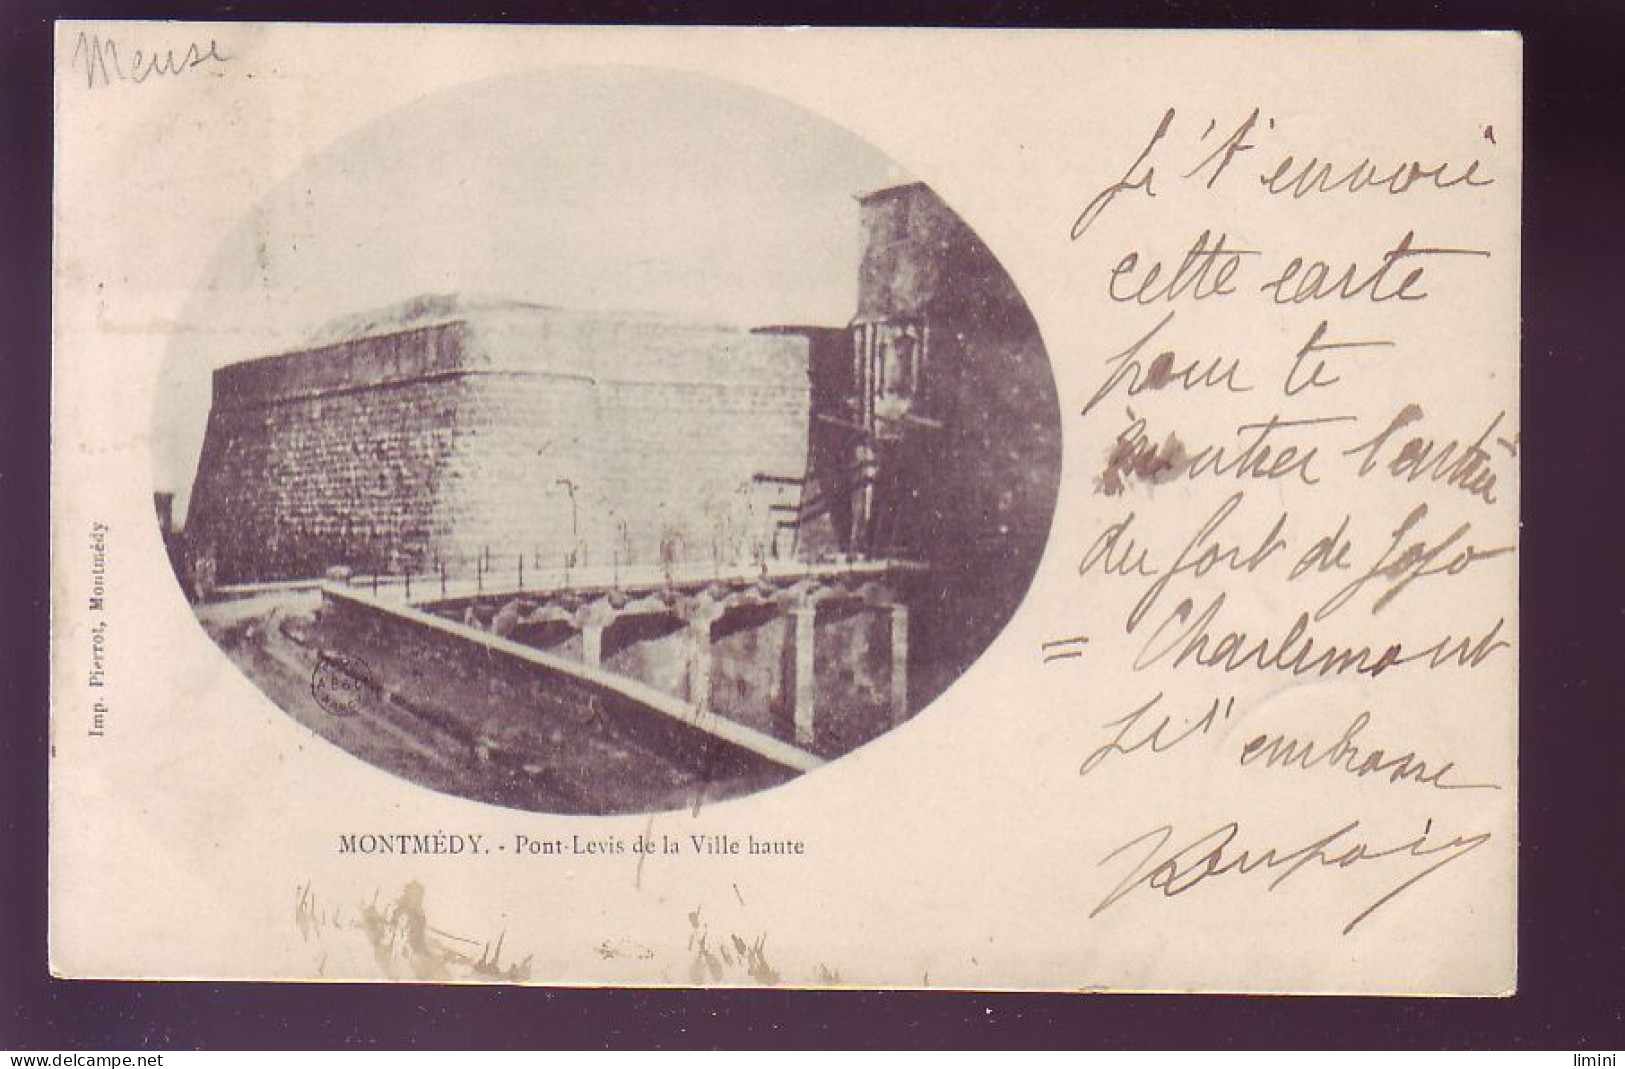 Meuse
Je t'envoie
cette carte
pour te
montrer l'entrée
du fort de
= Charlemont
Je t'
embrasse
Imp. Pierrot, Montmédy
MONTMÉDY. - Pont-Levis de la Ville haute
www.delcampe.net
limini